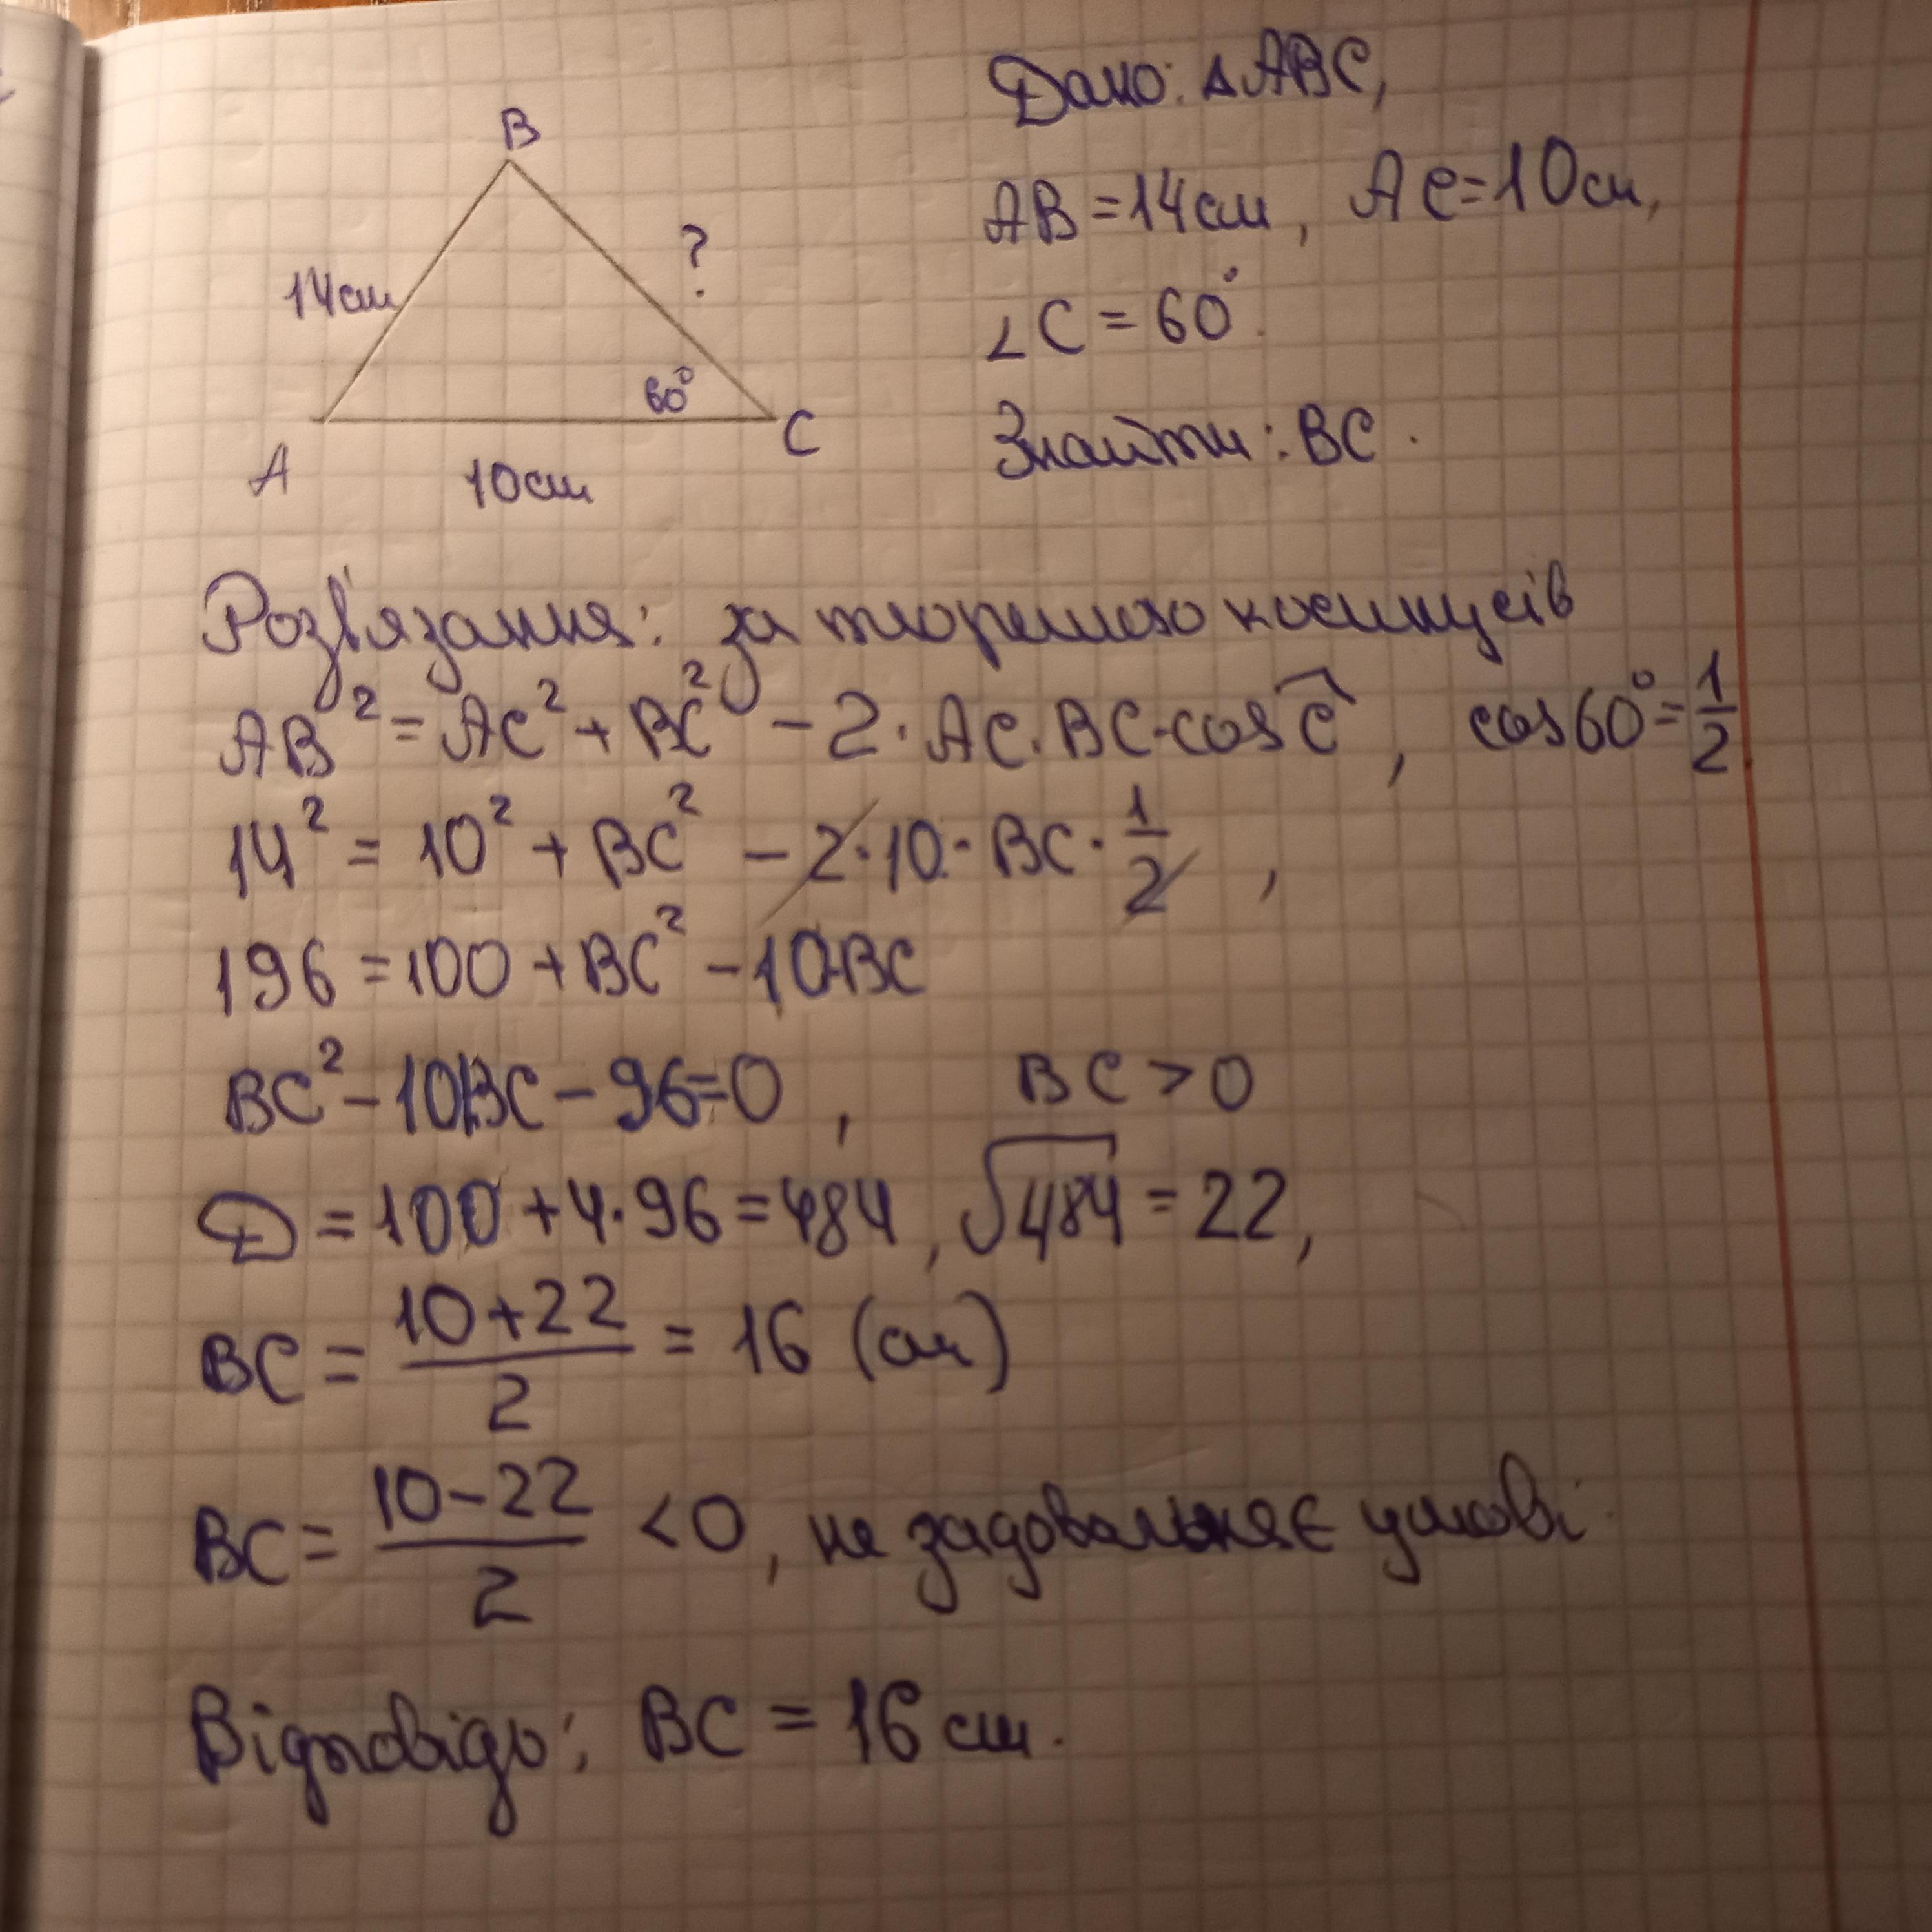 B
14см
?
60°
A
C
10см
Дано: ΔABC,
AB = 14см, AC = 10см,
∠C = 60°.
Знайти: BC.
Розв'язання: за теоремою косинусів
AB² = AC² + BC² - 2·AC·BC·cos Ĉ, cos60° = 1/2
14² = 10² + BC² - 2·10·BC·1/2,
196 = 100 + BC² - 10BC
BC² - 10BC - 96 = 0, BC > 0
D = 100 + 4·96 = 484, √484 = 22,
BC = (10+22)/2 = 16 (см)
BC = (10-22)/2 < 0, не задовольняє умові.
Відповідь: BC = 16 см.